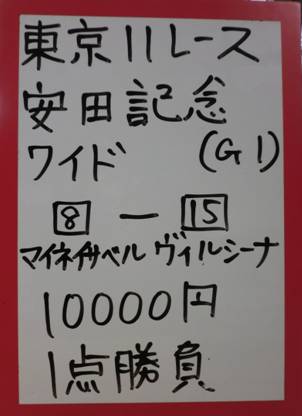 東京11レース
安田記念
ワイド (GI)
8 ー 15
マイネイサベル ヴィルシーナ
10000円
1点勝負